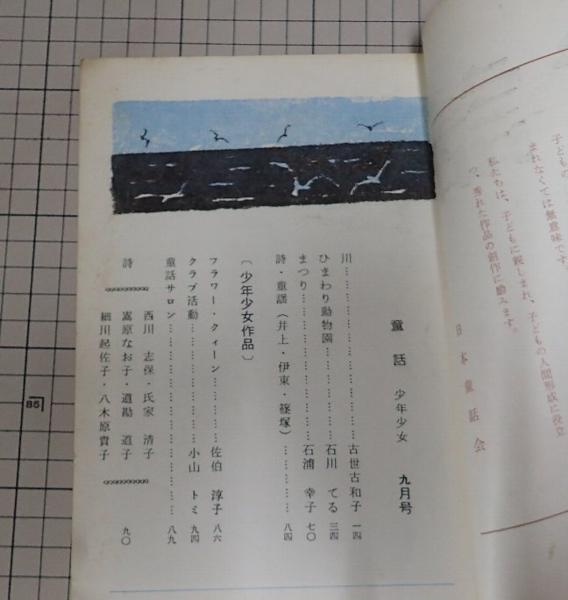 子どもの
まれなくては無意味です。
私たちは、子どもに親しまれ、子どもの人間形成に役立
つ、秀れた作品の創作に励みます。
日本童話会
童話 少年少女 九月号
川……………………古世古和子 一四
ひまわり動物園……………石川 てる 三四
まつり……………………石浦 幸子 七〇
詩・童謡(井上・伊東・篠塚)……………八四
〔少年少女作品〕
フラワー・クィーン……………佐伯 淳子 八六
クラブ活動……………………小山 トミ 九四
童話サロン……………………八九
詩
西川 志保・氏家 清子
嵩原なお子・道勘 道子
細川起佐子・八木原貴子
九〇
85